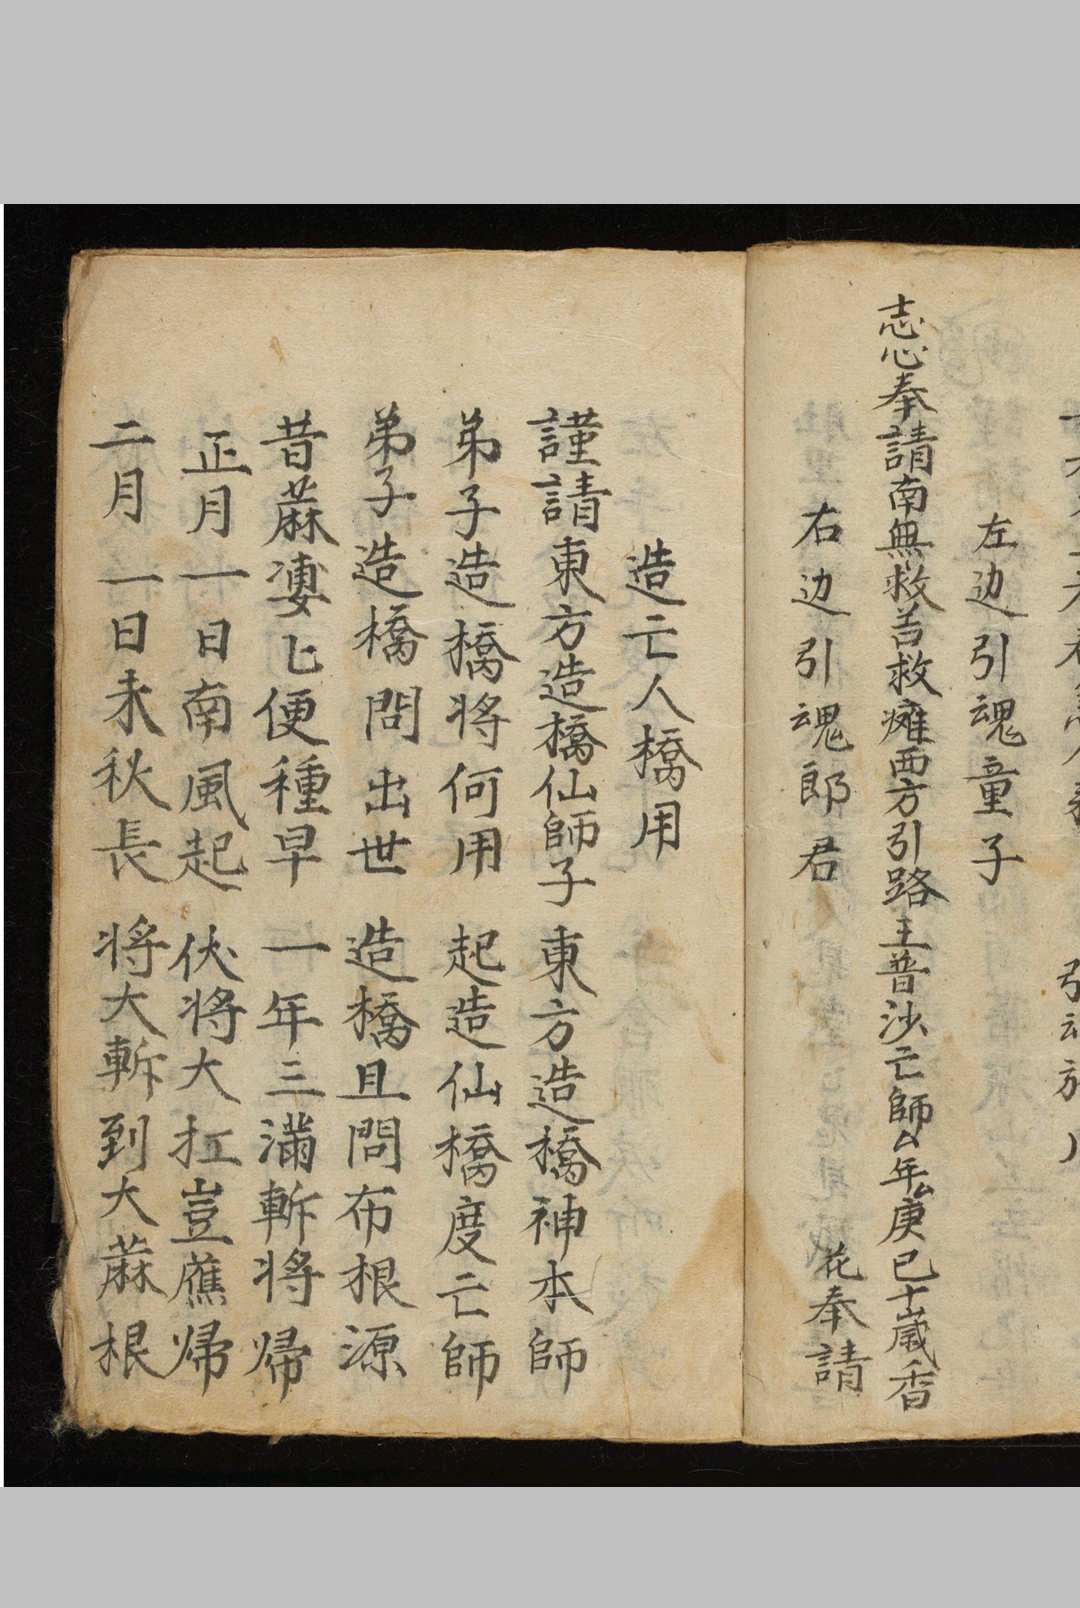 左边引魂童子
志心奉請南無救苦救瘫西方引路王普沙亡師厶年厶庚已十歲香
右边引魂郎君 花奉請
造亡人橋用
謹請東方造橋仙師子 東方造橋神本師
弟子造橋將何用 起造仙橋度亡師
弟子造橋問出世 造橋且問布根源
昔蔴凄匕便種早 一年三滿斬將帰
正月一日南風起 伏將大扛豈蕉帰
二月一日未秋長 將大斬到大蔴根